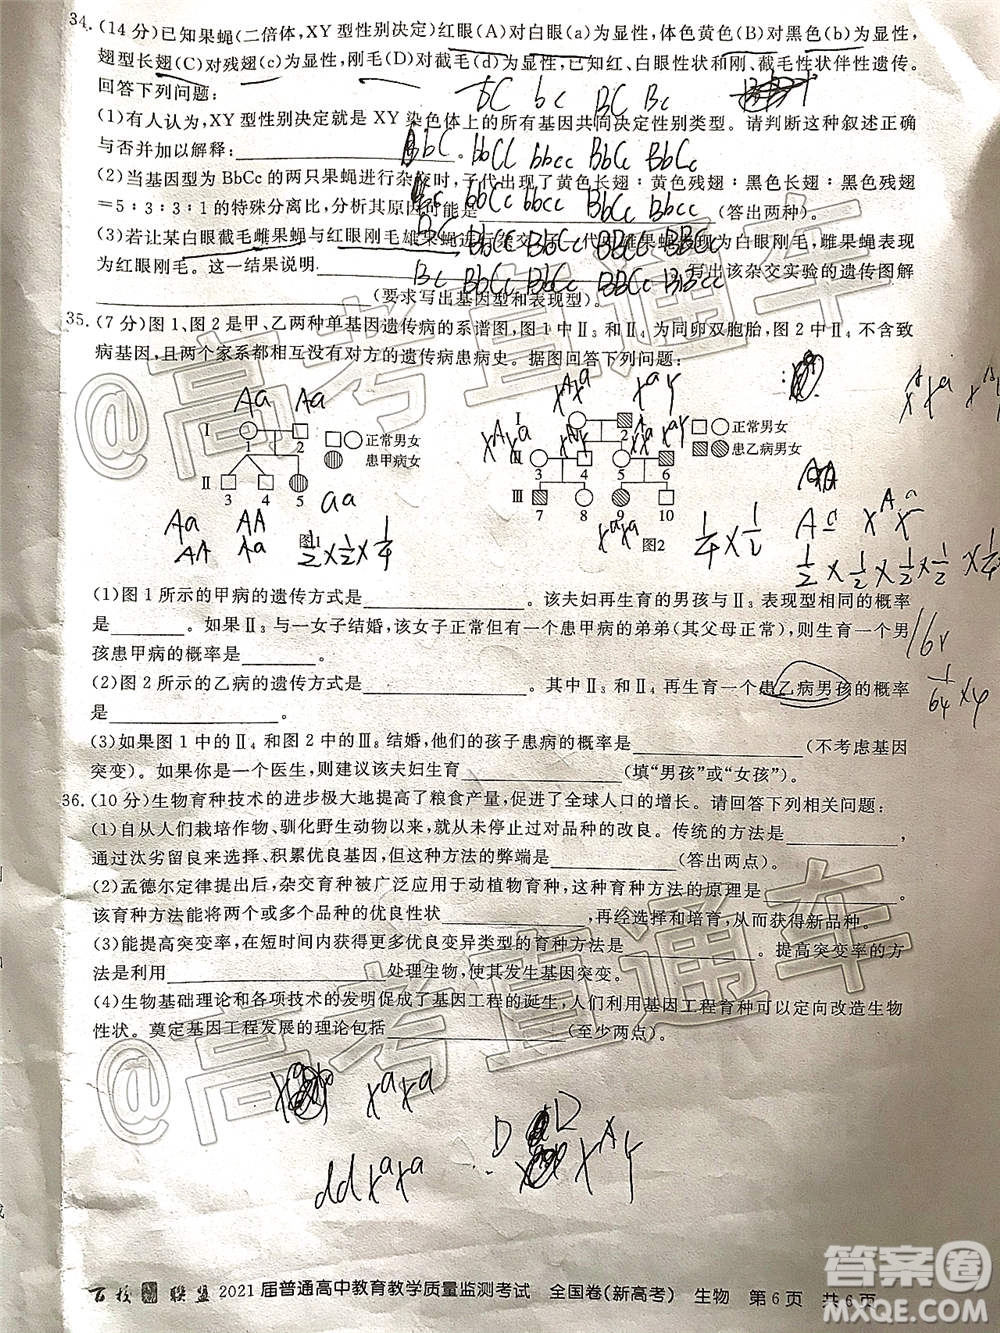 34.(14分)已知果蝇(二倍体,XY型性别决定)红眼(A)对白眼(a)为显性,体色黄色(B)对黑色(b)为显性,
翅型长翅(C)对残翅(c)为显性,刚毛(D)对截毛(d)为显性,已知红、白眼性状和刚、截毛性状伴性遗传。
回答下列问题:
bC bc BC Bc
(1)有人认为,XY型性别决定就是XY染色体上的所有基因共同决定性别类型。请判断这种叙述正确
与否并加以解释:
bC BbCC Bbcc BBCc BbCc
(2)当基因型为BbCc的两只果蝇进行杂交时,子代出现了黄色长翅:黄色残翅:黑色长翅:黑色残翅
=5:3:3:1的特殊分离比,分析其原因可能是(答出两种)。
(3)若让某白眼截毛雌果蝇与红眼刚毛雄果蝇进行杂交,子代雄果蝇表现为白眼刚毛,雌果蝇表现
为红眼刚毛。这一结果说明 写出该杂交实验的遗传图解
(要求写出基因型和表现型)。
35.(7分)图1、图2是甲、乙两种单基因遗传病的系谱图,图1中Ⅱ3和Ⅱ4为同卵双胞胎,图2中Ⅱ4不含致
病基因,且两个家系都相互没有对方的遗传病患病史。据图回答下列问题:
Aa Aa
Ⅰ 1 2 正常男女
患甲病女
Ⅱ 3 4 5
aa
Aa AA
AA Aa
图1
1/2×1/2×1/4
2 正常男女
患乙病男女
6
Ⅲ 7 8 9 10
图2
1/4×1/2
1/2×1/2×1/2×1/2
(1)图1所示的甲病的遗传方式是。该夫妇再生育的男孩与Ⅱ3表现型相同的概率
是。如果Ⅱ3与一女子结婚,该女子正常但有一个患甲病的弟弟(其父母正常),则生育一个男
孩患甲病的概率是。
(2)图2所示的乙病的遗传方式是。其中Ⅱ3和Ⅱ4再生育一个患乙病男孩的概率
是。
(3)如果图1中的Ⅱ4和图2中的Ⅲ8结婚,他们的孩子患病的概率是(不考虑基因
突变)。如果你是一名医生,建议该夫妇生育(填“男孩”或“女孩”)。
36.(10分)生物育种技术的进步极大地提高了粮食产量,促进了全球人口的增长。请回答下列相关问题:
(1)自从人们栽培作物、驯化野生动物以来,就未停止过对品种的改良。传统的方法是,
通过汰劣留良来选择、积累优良基因,但这种方法的弊端是(答出两点)。
(2)孟德尔定律提出后,杂交育种被广泛应用于动植物育种,这种育种方法的原理是。
该育种方法能将两个或多个品种的优良性状,再经选择和培育,从而获得新品种。
(3)能提高突变率,在短时间内获得更多优良变异类型的育种方法是。提高突变率的方
法是利用处理生物,使其发生基因突变。
(4)生物基础理论和各项技术的发明促成了基因工程的诞生,人们利用基因工程育种可以定向改造生物
性状。奠定基因工程发展的理论包括(至少两点)。
百校联盟 2021届普通高中教育教学质量监测考试 全国卷(新高考) 生物 第6页 共6页
@高考直通车
@高考直通车
答案圈
MXQE.COM